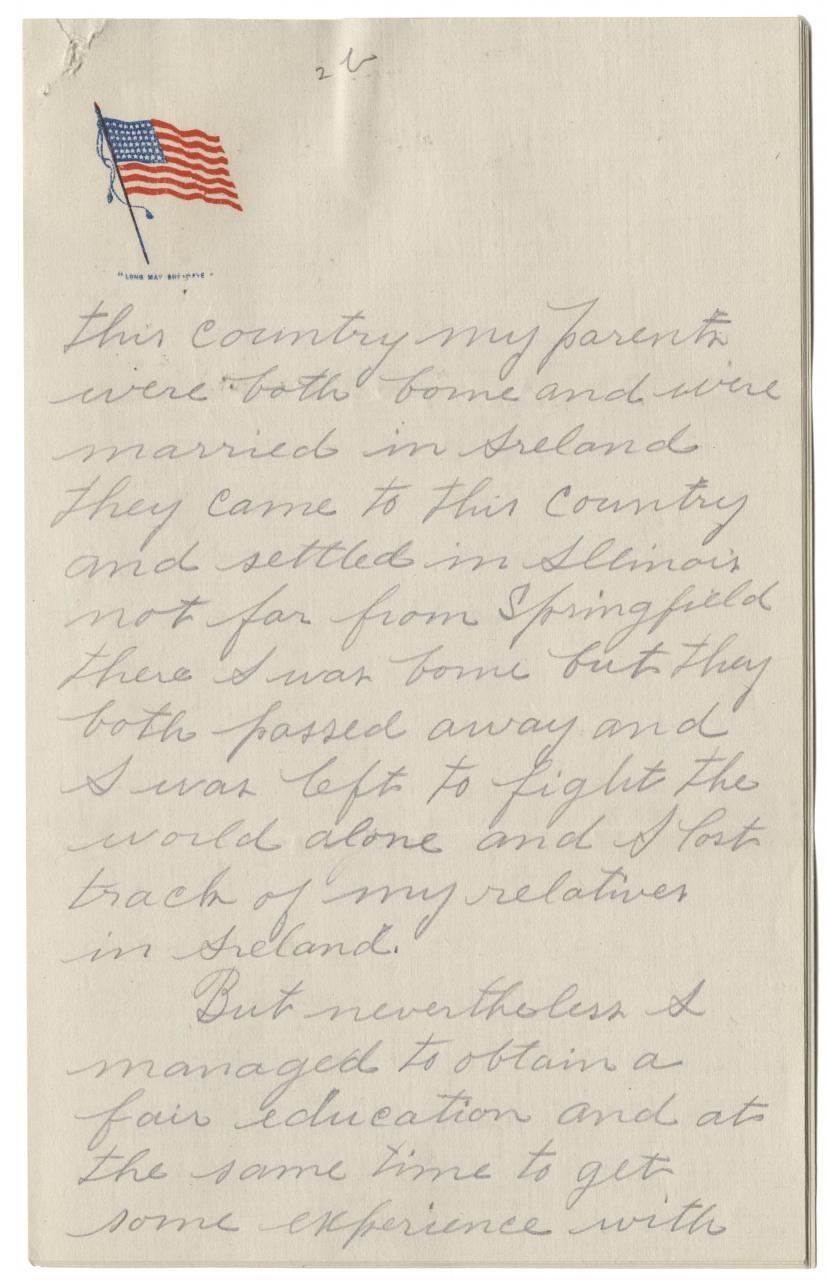 2 b
"LONG MAY SHE WAVE"
this country my parents
were both borne and were
married in Ireland
they came to this country
and settled in Illinois
not far from Springfield
there I was borne but they
both passed away and
I was left to fight the
world alone and I lost
track of my relatives
in Ireland.
But nevertheless I
managed to obtain a
fair education and at
the same time to get
some experience with